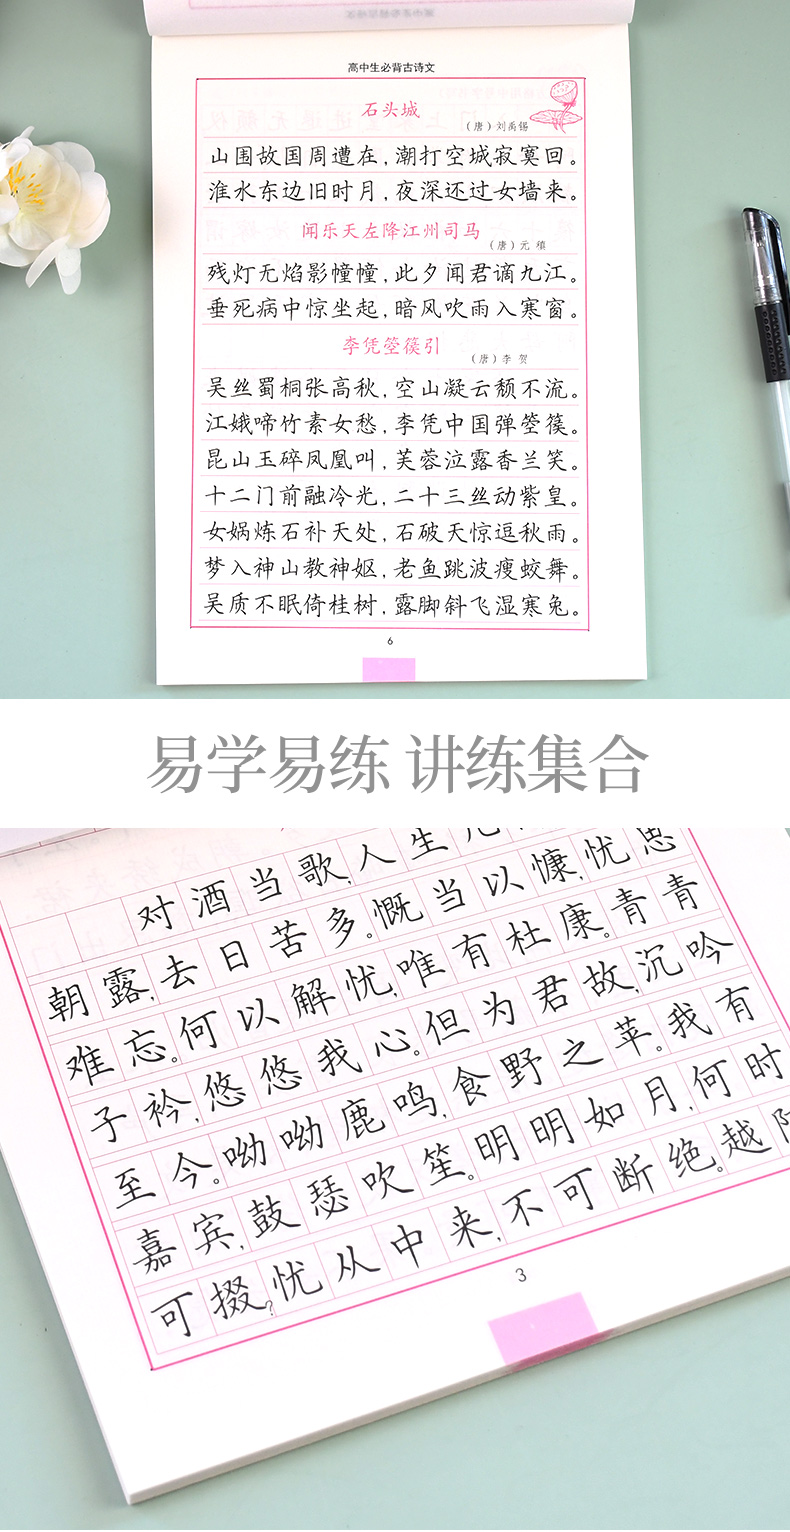 高中生必背古诗文
石头城
（唐）刘禹锡
山围故国周遭在，潮打空城寂寞回。
淮水东边旧时月，夜深还过女墙来。
闻乐天左降江州司马
（唐）元稹
残灯无焰影幢幢，此夕闻君谪九江。
垂死病中惊坐起，暗风吹雨入寒窗。
李凭箜篌引
（唐）李贺
吴丝蜀桐张高秋，空山凝云颓不流。
江娥啼竹素女愁，李凭中国弹箜篌。
昆山玉碎凤凰叫，芙蓉泣露香兰笑。
十二门前融冷光，二十三丝动紫皇。
女娲炼石补天处，石破天惊逗秋雨。
梦入神山教神妪，老鱼跳波瘦蛟舞。
吴质不眠倚桂树，露脚斜飞湿寒兔。
6
易学易练 讲练集合
对酒当歌，人生几
朝露，去日苦多。慨当以慷，忧思
难忘。何以解忧，唯有杜康。青青
子衿，悠悠我心。但为君故，沉吟
至今。呦呦鹿鸣，食野之苹。我有
嘉宾，鼓瑟吹笙。明明如月，何时
可掇？忧从中来，不可断绝。越
3